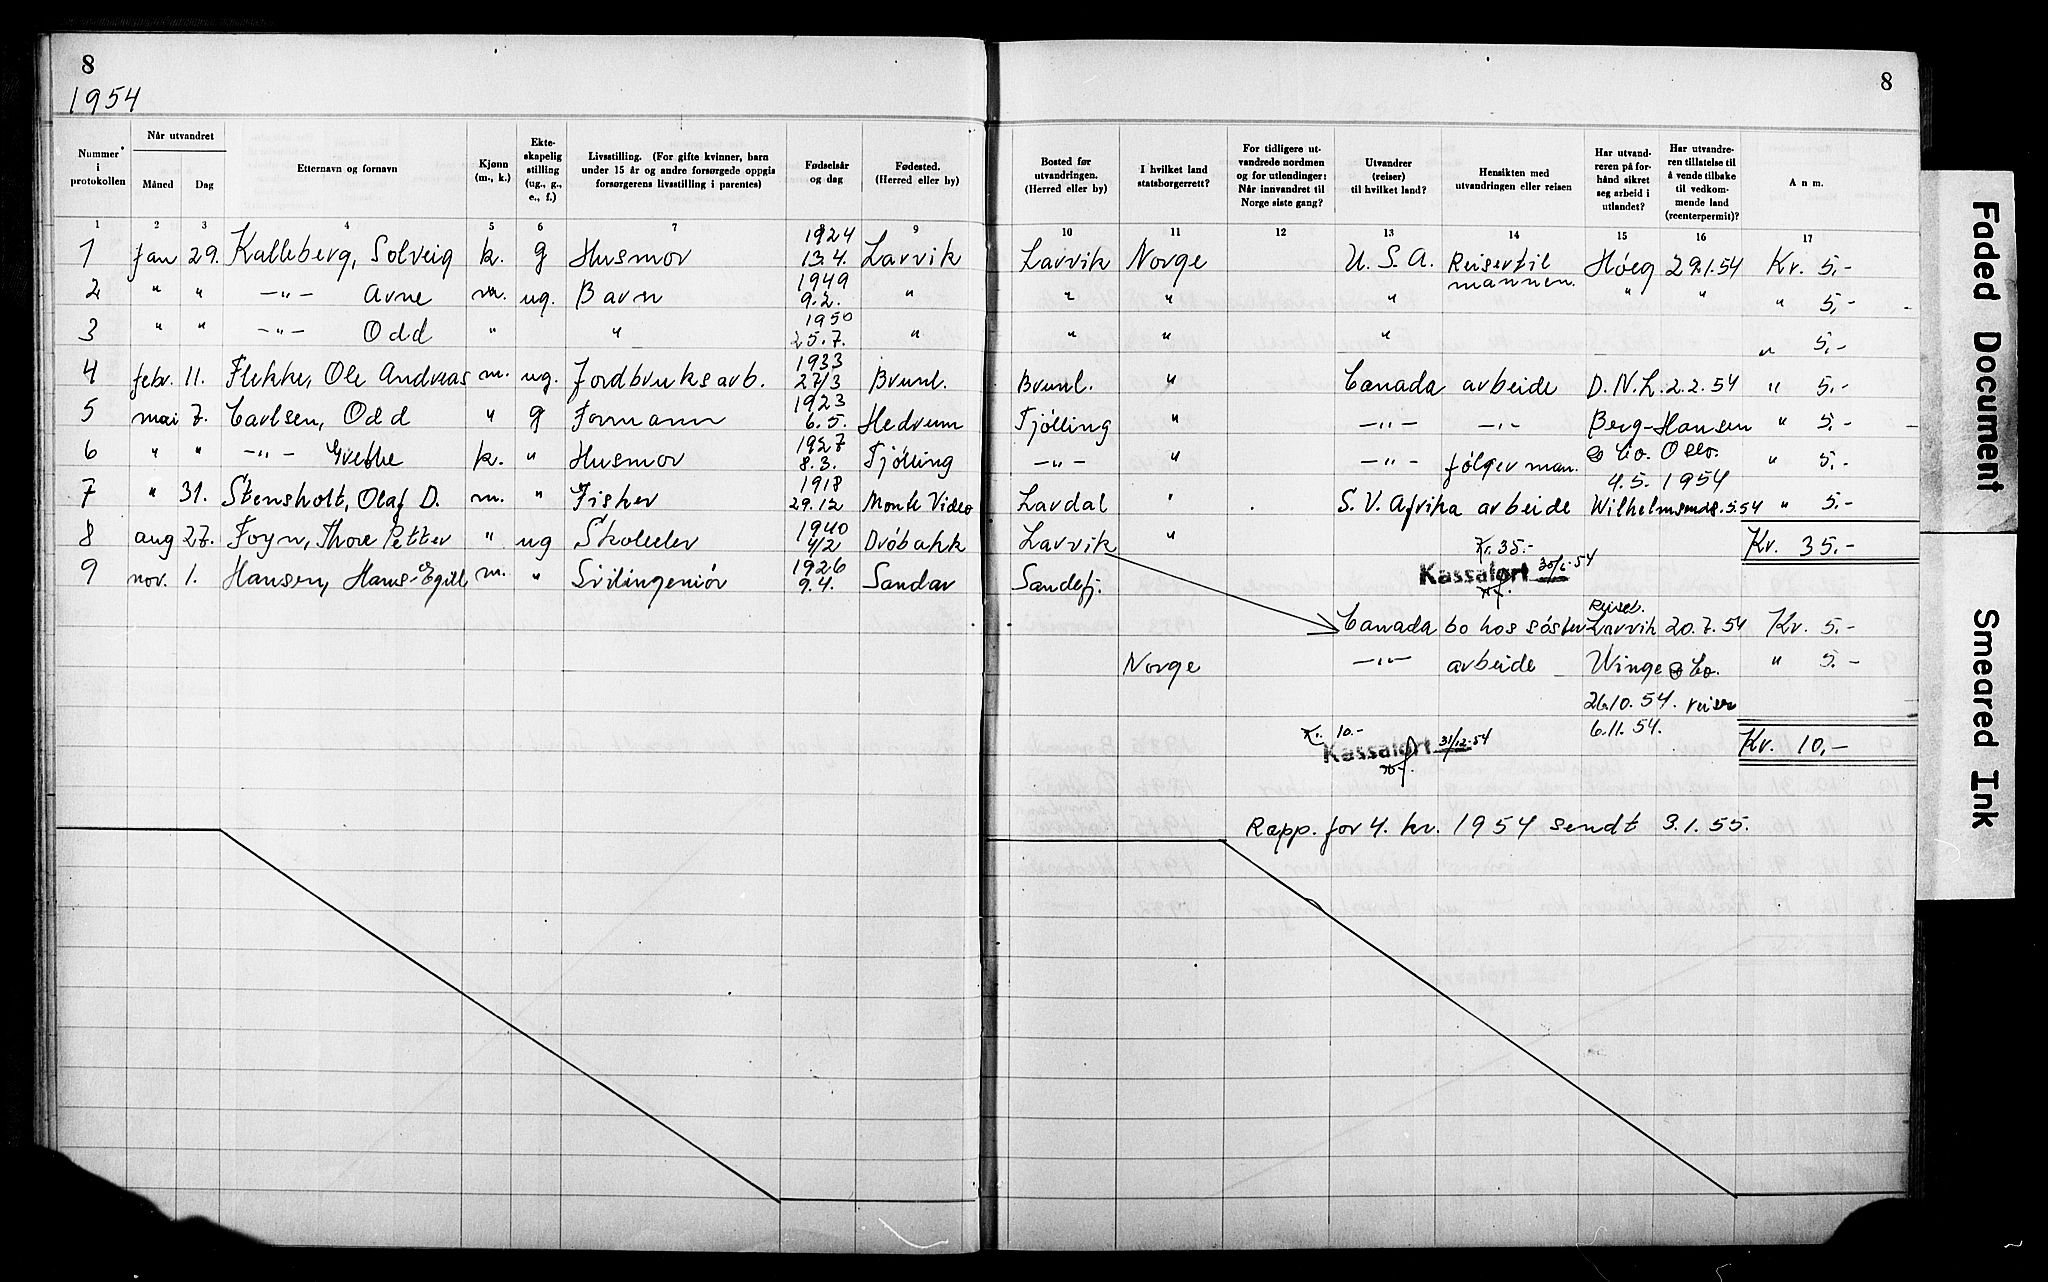 8
1954
Nummer i protokollen | Når utvandret Måned | Dag | Etternavn og fornavn | Kjønn (m., k.) | Ekteskapelig stilling (ug., g., e., f.) | Livsstilling. (For gifte kvinner, barn under 15 år og andre forsørgede oppgis forsørgerens livsstilling i parentes) | Fødselsår og dag | Fødested. (Herred eller by)
1 2 3 4 5 6 7 9
1 Jan 29. Kalleberg, Solveig k. g Husmor 1924 13.4. Larvik
2 " " -"- Arne m. ug. Barn 1949 9.2. "
3 " " -"- Odd " " 1950 25.7. "
4 febr. 11. Flekke, Ole Andreas m. ug. Jordbruksarb. 1933 27/3 Brunl.
5 mai 7. Carlsen, Odd " g Formann 1923 6.5. Hedrum
6 " " -"- Grethe k. " Husmor 1927 8.3. Tjølling
7 " 31. Stensholt, Olaf D. m. " Fisker 1918 29.12 Monte Video
8 aug 27. Foyn, Thore Petter " ug Skoleelev 1940 4/2 Drøbakk
9 nov. 1. Hansen, Hans-Egill m. " Sivilingeniør 1926 9.4. Sandar
8
Bosted før utvandringen. (Herred eller by) | I hvilket land statsborgerrett? | For tidligere utvandrede nordmen og for utlendinger: Når innvandret til Norge siste gang? | Utvandrer (reiser) til hvilket land? | Hensikten med utvandringen eller reisen | Har utvandreren på forhånd sikret seg arbeid i utlandet? | Har utvandreren tillatelse til å vende tilbake til vedkommende land (reenterpermit)? | Anm.
10 11 12 13 14 15 16 17
Larvik Norge U.S.A. Reiser til mannen. Høeg 29.1.54 Kr. 5,-
" " " " " " 5,-
" " " " 5,-
Brunl. " Canada arbeide D.N.L. 2.2.54 " 5,-
Tjølling " -"- -"- Berg-Hansen " 5.-
-"- " -"- følger man. & Co. Oslo. " 5.-
4.5. 1954
Lardal " S.V. Afrika arbeide Wilhelmsen 5.54 " 5.-
Larvik " Kr. 35.-
Kr. 35.-
Kassaført 30/6-54
Sandefj.
Reiseb.
Canada bo hos søster Larvik 20.7.54 Kr. 5.-
Norge -"- arbeide Winge & Co. " 5.-
26.10.54. reiser
6.11.54.
Kr. 10.-
Kassaført 31/12-54
Kr. 10,-
Rapp. for 4. kv. 1954 sendt 3.1.55.
Faded Document
Smeared Ink